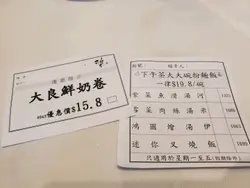 大良鮮奶卷
優惠價$15.8
下午茶大大碗粉麵飯
一律$10.8/碗
紫菜魚滑湯河
雪菜肉絲湯米
鴻圖燴湯伊
迷你叉燒飯
只適用於星期一至五